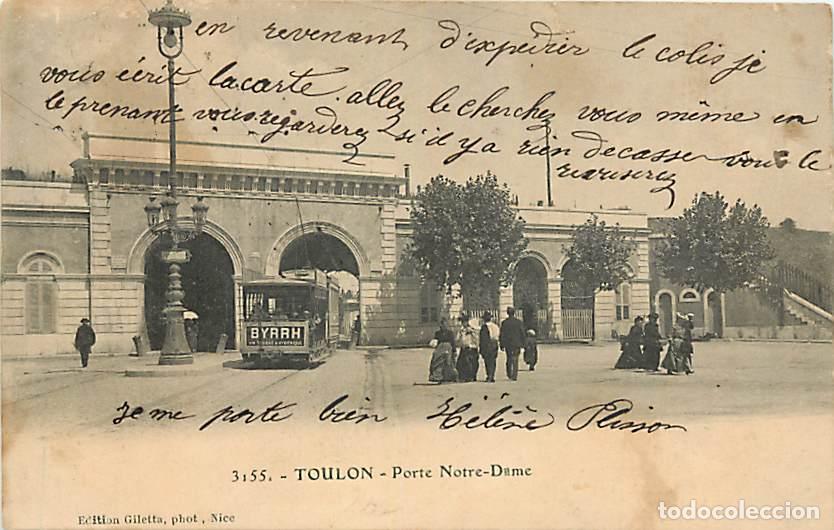 en revenant d'expédier le colis je
vous écrit la carte. allez le cherchez vous même en
le prenant vous regarderez si il y a rien de casser vous le
reviserez
BYRRH
Je me porte bien Hélène Plisson
3155. - TOULON - Porte Notre-Dame
Edition Giletta, phot., Nice
todocoleccion